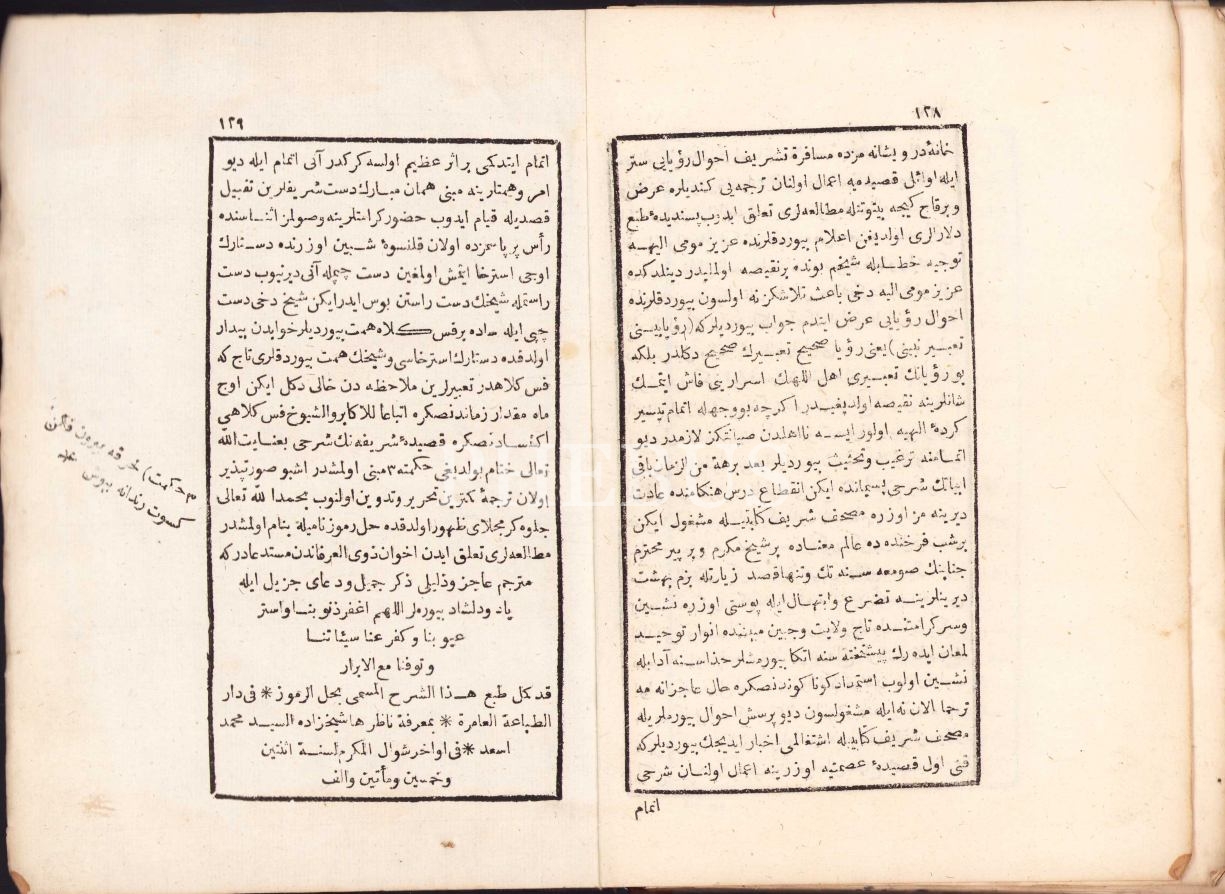 ١٢٨
خانۀ درویشانه مزده مسافرة تشریف احوال رؤیایی ستر
ایله اوائل قصیده یه اعمال اولنان ترجمه یی کندیلره عرض
وبرقاج کیجه بیتوتتله مطالعه لری تعلق ایدوب پسندیدۀ طبع
دلارالری اولدیغن اعلام بیوردقلرنده عزیز مومی الیهه
توجیه خطابله شیخم بونده برنقیصه اولمالیدر دینلدکده
عزیز مومی الیه دخی باعث تلاشکز نه اولسون بیوردقلرنده
احوال رؤیایی عرض ایتدم جواب بیوردیلرکه (رؤیا بیستی
تعبیر نیستی) یعنی رؤیا صحیح تعبیرك صحیح دکلدر بلکه
بو رؤیانك تعبیری اهل اللهك اسرارینی فاش ایتمك
شانلرینه نقیصه اولدیغیدر اکرچه بووجهله اتمام تیسیر
کردۀ الهیه اولور ایسه نااهلدن صیانتکز لازمدر دیو
اتمامنه ترغیب وتحثیث بیوردیلر بعد برهة من الزمان باقی
ابیاتك شرحی پسمانده ایکن انقطاع درس هنکامنده عادت
دیرینه مز اوزره مصحف شریف کتابتیله مشغول ایکن
برشب فرخنده ده عالم معناده برشیخ مکرم وبر پیر محترم
جنابنك صومعه سنه تك وتنها قصد زیارتله بزم بهشت
دیرینلرینه تضرع وابتهال ایله پوستی اوزره نشین
وسرکرامتنده تاج ولایت وجبین مبیننده انوار توحید
لمعان ایده رك پیشتخته سنه اتکا بیورمشلر حذاسنه آدابله
نشین اولوب استمداد کونا کوندنصکره حال عاجزانه مه
ترحما الان نه ایله مشغولسون دیو پرسش احوال بیورملریله
مصحف شریف کتابتیله اشتغالمی اخبار ایدیجك بیوردیلرکه
قنی اول قصیدۀ عصمتیه اوزرینه اعمال اولنان شرحی
اتمام
١٢٩
اتمام ایتدکمی بر اثر عظیم اولسه کرکدر آنی اتمام ایله دیو
امر وهمتلرینه مبنی همان مبارك دست شریفلرین تقبیل
قصدیله قیام ایدوب حضور کرامتلرینه وصولمز اثناسنده
رأس پریاسمزده اولان قلنسوۀ شبین اوزرنده دستارك
اوجی استرخا ایتمش اولمغین دست چپمله آنی دیرنیوب دست
راستمله شیخك دست راستن بوس ایدرایکن شیخ دخی دست
چپی ایله ساده برفس کلاه همت بیوردیلر خوابدن بیدار
اولدقده دستارك استرخاسی وشیخك همت بیوردقلری تاج که
فس کلاهدر تعبیرلرین ملاحظه دن خالی دکل ایکن اوج
ماه مقدار زماندنصکره اتباعا للاکابر والشیوخ فس کلاهی
اکتسادنصکره قصیدۀ شریفه نك شرحی بعنایت الله
تعالی ختام بولدیغی حکمته ٣ مبنی اولمشدر اشبو صورتپذیر
اولان ترجمۀ کمترین تحریر وتدوین اولنوب بحمد الله تعالی
جلوه کر مجلای ظهور اولدقده حل رموز نامیله بنام اولمشدر
مطالعه لری تعلق ایدن اخوان ذوی العرفاندن مستدعادر که
مترجم عاجز وذلیلی ذکر جمیل ودعای جزیل ایله
یاد ودلشاد بیوره لر اللهم اغفر ذنوبنا واستر
عیوبنا وکفر عنا سیئاتنا
وتوفنا مع الابرار
قد کمل طبع هذا الشرح المسمی بحل الرموز * فی دار
الطباعة العامرة * بمعرفة ناظرها شیخزاده السید محمد
اسعد * فی اواخر شوال المکرم لسنة اثنتین
وخمسین ومأتین والف
٣ حکمت) خرقه بیرون فکن
کسوت رندانه بپوش *